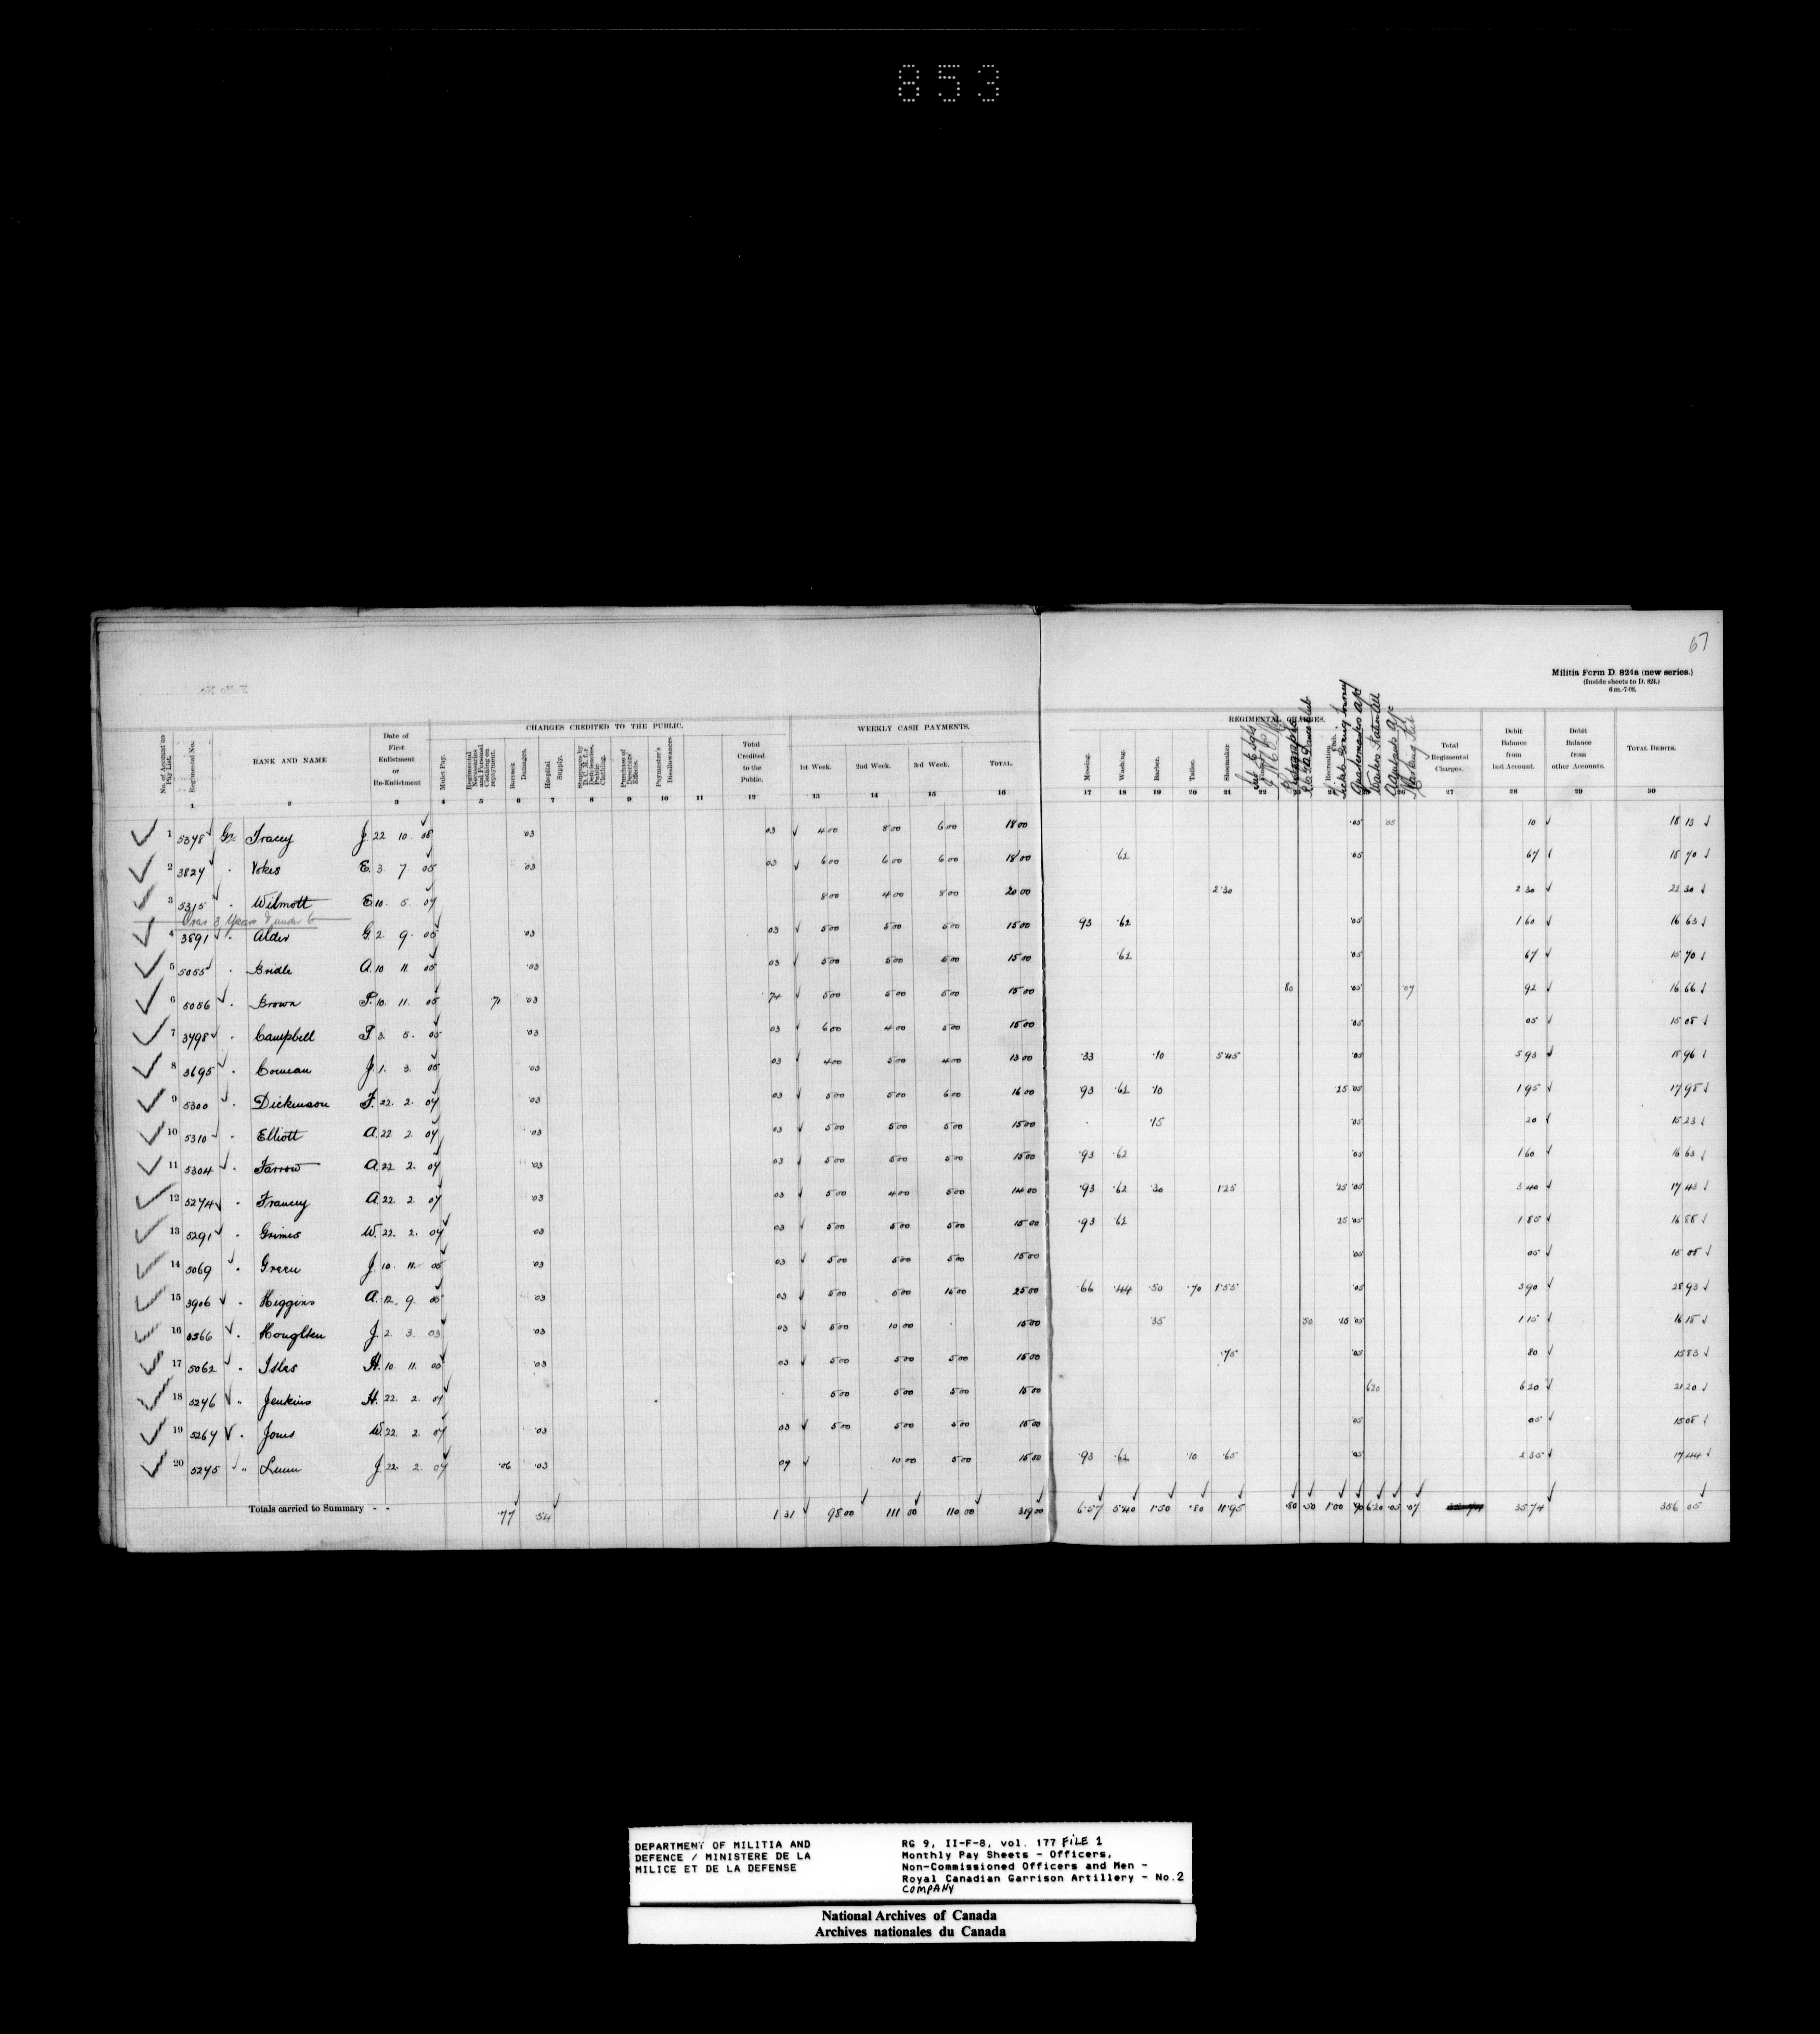 853
67
Militia Form D. 824a (new series.)
(Inside sheets to D. 824.)
6 m.-7-08.
CHARGES CREDITED TO THE PUBLIC.
WEEKLY CASH PAYMENTS.
REGIMENTAL CHARGES.
No. of Account on Pay List.
Regimental No.
RANK AND NAME
Date of First Enlistment or Re-Enlistment
Messing.
Washing.
Barber.
Tailor.
Shoemaker
Barrack Damages.
Hospital Supply.
Paymaster's Disallowances
Total Credited to the Public.
1st Week.
2nd Week.
3rd Week.
TOTAL.
Total Regimental Charges.
Debit Balance from last Account.
Debit Balance from other Accounts.
TOTAL DEBITS.
1 2 3 4 5 6 7 8 9 10 11 12 13 14 15 16 17 18 19 20 21 22 27 28 29 30
1 5348 Gr Tracey J. 22 10 08 .03 03 4 00 8 00 6 00 18 00 .05 .05 10 18 13
2 3824 . Vokes E. 3 7 05 .03 03 6 00 6 00 6 00 18 00 .62 .05 67 18 70
3 5315 . Wilmott E 10 5 07 8 00 4 00 8 00 20 00 2.30 2 30 22 30
Over 3 Years & under 6
4 3891 . Alder G. 2 9 05 .03 03 5 00 5 00 5 00 15 00 93 .62 .05 1 60 16 63
5 5055 . Bridle A. 10 11 05 .03 03 5 00 5 00 5 00 15 00 .62 .05 67 15 70
6 5056 . Brown P. 10 11 05 .71 .03 74 5 00 5 00 5 00 15 00 80 .05 .07 92 16 66
7 3498 . Campbell P 3 5 05 .03 03 6 00 4 00 5 00 15 00 .05 05 15 08
8 3695 . Comeau J. 1 3 05 .03 03 4 00 5 00 4 00 13 00 .33 .10 5.45 .05 5 93 18 96
9 5300 . Dickinson F. 22 2 07 .03 03 5 00 5 00 6 00 16 00 .93 .62 .10 .25 .05 1 95 17 98
10 5310 . Elliott A. 22 2 07 .03 03 5 00 5 00 5 00 15 00 .15 .05 20 15 23
11 5304 . Farrow A. 22 2 07 .03 03 5 00 5 00 5 00 15 00 .93 .62 .05 1 60 16 63
12 5274 . Francey A. 22 2 07 .03 03 5 00 4 00 5 00 14 00 .93 .62 .30 1.25 .25 .05 3 40 17 43
13 5291 . Grimes W. 22 2 07 .03 03 5 00 5 00 5 00 15 00 .93 .62 25 .05 1 85 16 88
14 5069 . Green J. 10 11 05 .03 03 5 00 5 00 5 00 15 00 .05 05 15 08
15 3906 . Higgins A. 12 9 05 .03 03 5 00 5 00 15 00 25 00 .66 .44 .50 .70 1.55 .05 3 90 28 93
16 . Houghten J. 2 3 03 .03 03 5 00 10 00 15 00 .35 50 .25 .05 1 15 16 18
17 5062 . Isles H. 10 11 05 .03 03 5 00 5 00 5 00 15 00 .75 .05 80 15 83
18 5246 . Jenkins H. 22 2 07 5 00 5 00 5 00 15 00 6 20 6 20 21 20
19 5264 . Jones W. 22 2 07 .03 03 5 00 5 00 5 00 15 00 .05 05 15 08
20 5245 . Lunn J 22 2 07 .06 .03 09 10 00 5 00 15 00 .93 .62 .10 .65 .05 2 35 17 44
Totals carried to Summary - - .77 .54 1 31 98 00 111 00 110 00 319 00 6.57 5.40 1.50 .80 11.95 .80 .50 1.00 .90 6.20 .05 .07 35 74 356 05
DEPARTMENT OF MILITIA AND
DEFENCE / MINISTERE DE LA
MILICE ET DE LA DEFENSE
RG 9, II-F-8, vol. 177 FILE 1
Monthly Pay Sheets - Officers,
Non-Commissioned Officers and Men -
Royal Canadian Garrison Artillery - No.2
COMPANY
National Archives of Canada
Archives nationales du Canada